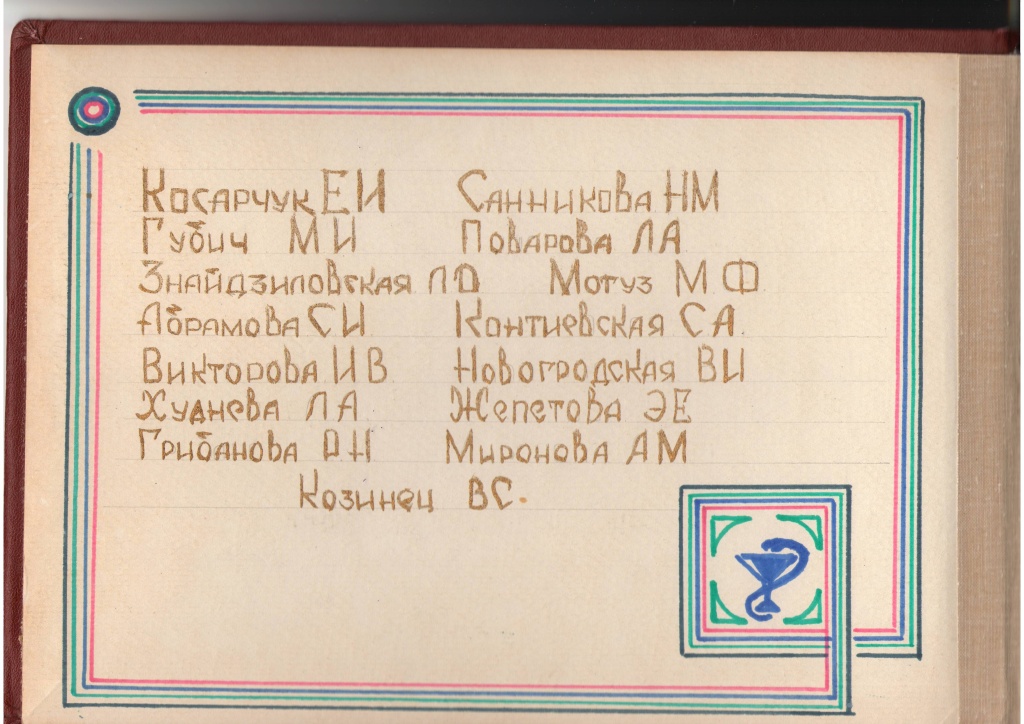 Косарчук ЕИ Санникова НМ
Губич МИ Поварова ЛА
Знайдзиловская ЛД Мотуз МФ
Абрамова СИ Контиевская СА
Викторова ИВ Новогродская ВИ
Худнева ЛА Жепетова ЭЕ
Грибанова РН Миронова АМ
Козинец ВС.